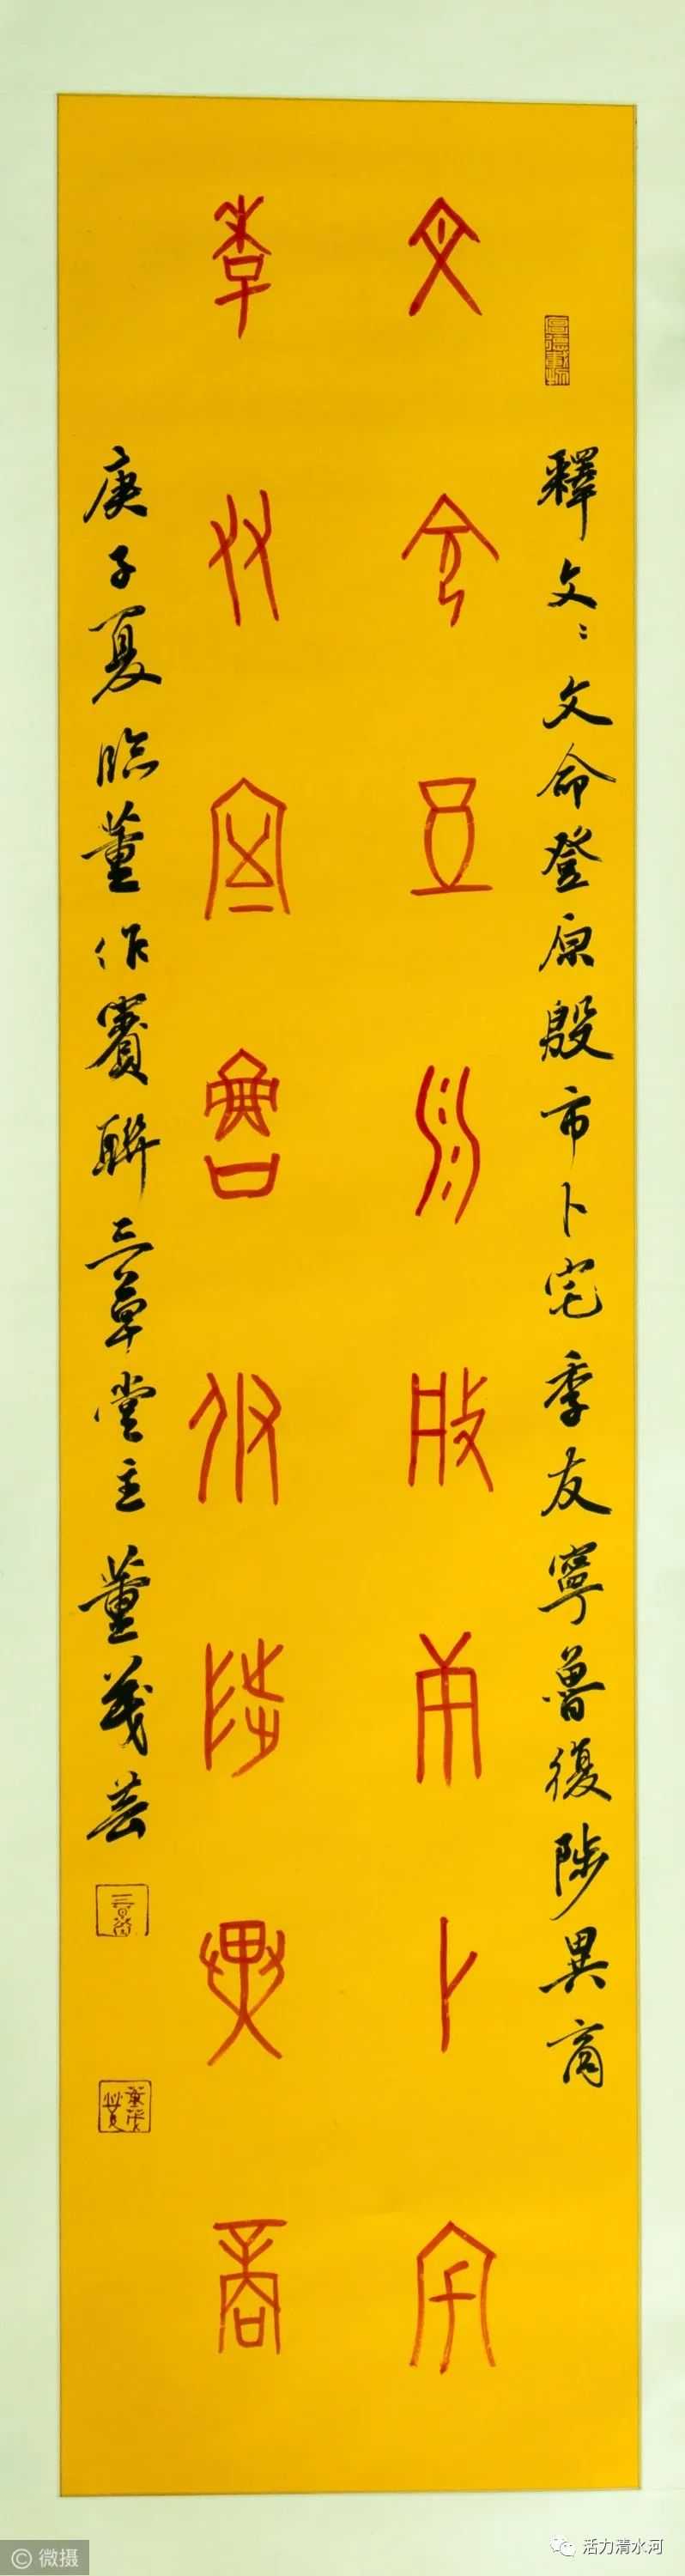 釋文：文命登原殷市卜宅季友寧魯復陟異商
文命登原殷市卜宅
季友寧魯復陟異商
庚子夏臨董作賓聯三草堂主董義芸
微摄
活力清水河